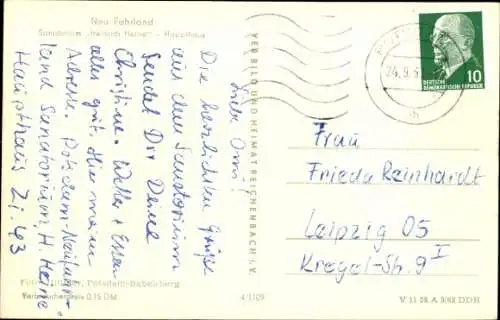 Neu Fahrland
Sanatorium „Heinrich Heine" - Haupthaus
Liebe Omi!
Die herzlichsten Grüße
aus dem Sanatorium
sendet Dir Deine
Christine. Wetter + Essen
alles gut. Hier meine
Adresse. Potsdam-Neufahr-
land Sanatorium „H. Heine"
Haupthaus Zi. 43
VEB BILD UND HEIMAT REICHENBACH I. V.
24.9.6
DEUTSCHE
DEMOKRATISCHE REPUBLIK
10
Frau
Frieda Reinhardt
Leipzig O5
Kregel-Str. 9 I
Potsdam-Babelsberg
Verbraucherpreis 0,15 DM
4/1109
V 11 28 A 3/62 DDR